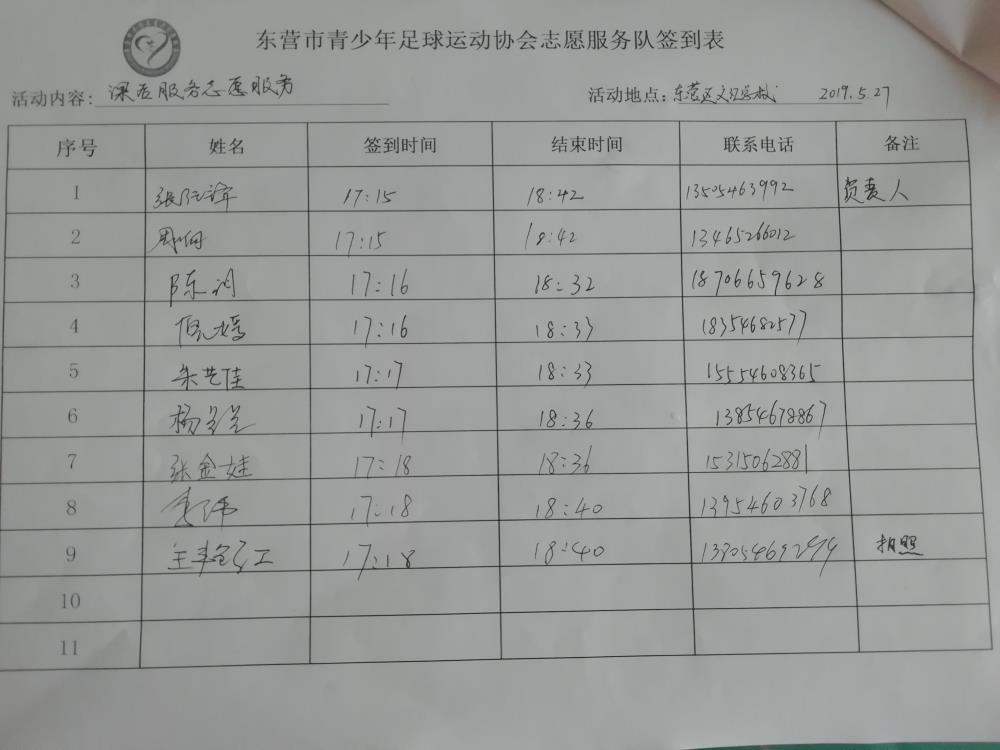 东营市青少年足球运动协会志愿服务队签到表
活动内容: 课后服务志愿服务 活动地点: 东营区文汇学校 2019.5.27
序号 姓名 签到时间 结束时间 联系电话 备注
1 17:15 18:42 13505463992 负责人
2 17:15 18:42 13465266012
3 陈 17:16 18:32 18706659628
4 倪婷 17:16 18:33 18354682577
5 朱艺佳 17:17 18:33 15554608365
6 杨 17:17 18:36 13854678867
7 张金娃 17:18 18:36 15315062881
8 李伟 17:18 18:40 13954603768
9 17:18 18:40 拍照
10
11